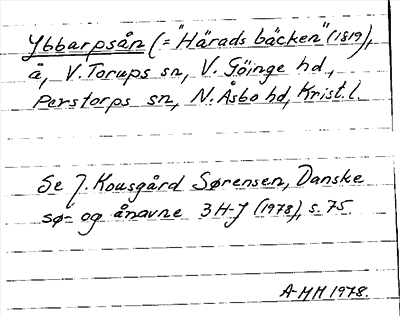 Ybbarpsån (= "Härads bäcken" (1819),
å, V. Torups sn, V. Göinge hd.,
Perstorps sn, N. Åsbo hd, Krist. l.
Se J. Kousgård Sørensen, Danske
sø- og ånavne 3 H-J (1978), s. 75.
A-MH 1978.